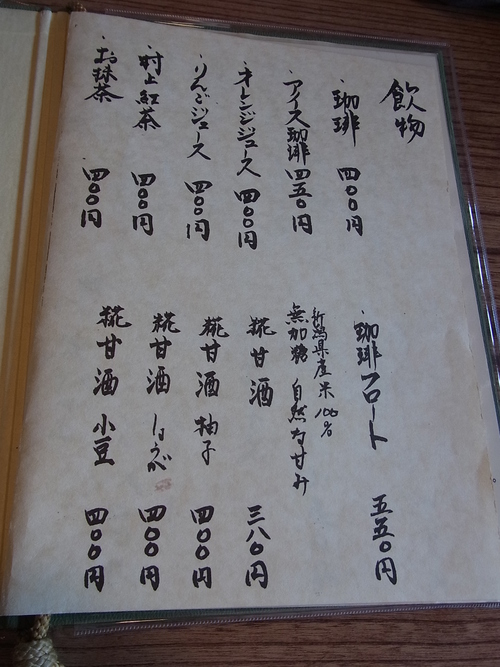 飲物
・珈琲 四〇〇円
・アイス珈琲 四五〇円
・オレンジジュース 四〇〇円
・りんごジュース 四〇〇円
・村上紅茶 四〇〇円
・お抹茶 四〇〇円
・珈琲フロート 五五〇円
新潟県産米100%
無加糖 自然な甘み
糀甘酒 三八〇円
糀甘酒 柚子 四〇〇円
糀甘酒 しょうが 四〇〇円
糀甘酒 小豆 四〇〇円